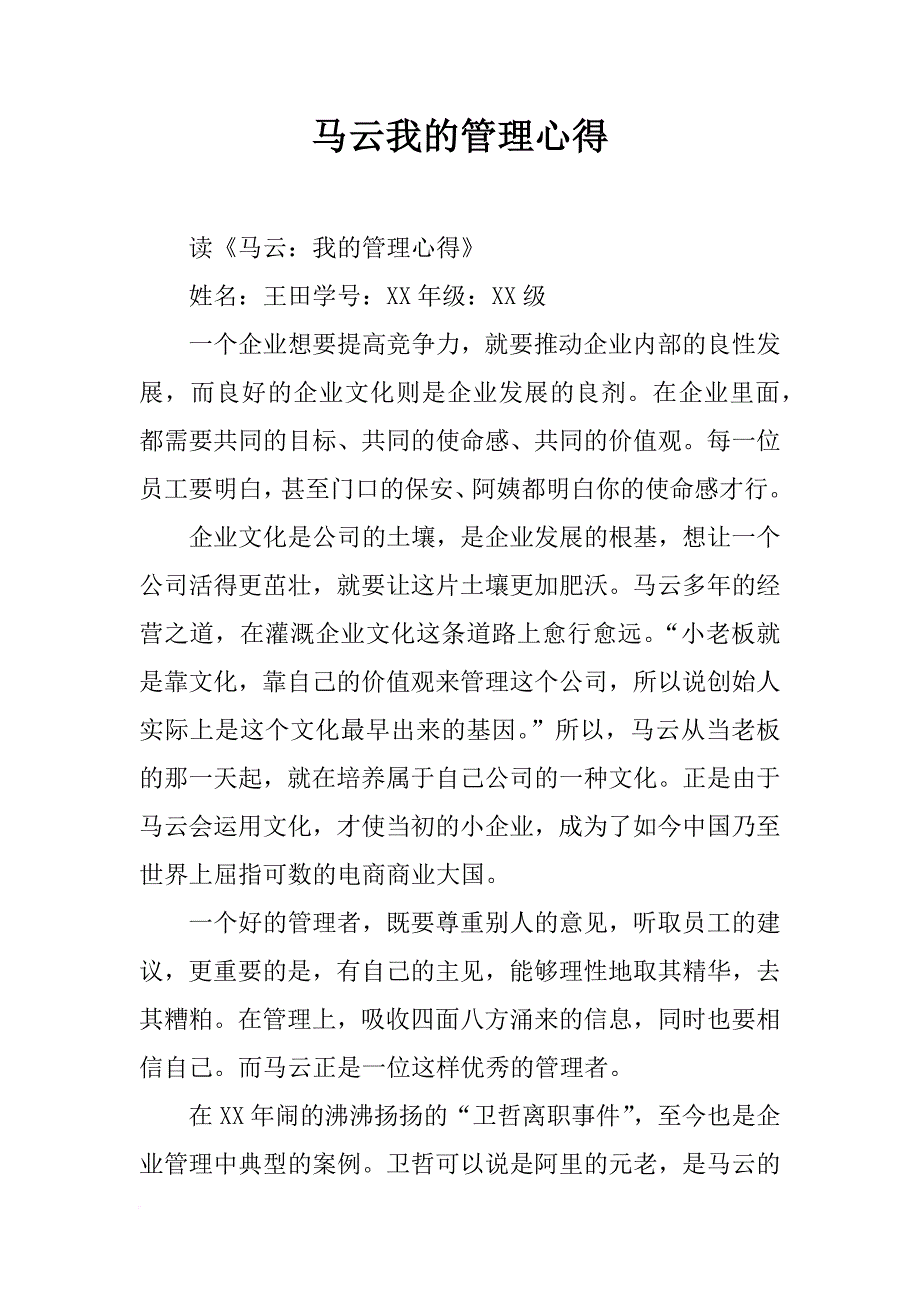 马云我的管理心得
读《马云：我的管理心得》
姓名：王田学号：XX 年级：XX 级
一个企业想要提高竞争力，就要推动企业内部的良性发
展，而良好的企业文化则是企业发展的良剂。在企业里面，
都需要共同的目标、共同的使命感、共同的价值观。每一位
员工要明白，甚至门口的保安、阿姨都明白你的使命感才行。
企业文化是公司的土壤，是企业发展的根基，想让一个
公司活得更茁壮，就要让这片土壤更加肥沃。马云多年的经
营之道，在灌溉企业文化这条道路上愈行愈远。“小老板就
是靠文化，靠自己的价值观来管理这个公司，所以说创始人
实际上是这个文化最早出来的基因。”所以，马云从当老板
的那一天起，就在培养属于自己公司的一种文化。正是由于
马云会运用文化，才使当初的小企业，成为了如今中国乃至
世界上屈指可数的电商商业大国。
一个好的管理者，既要尊重别人的意见，听取员工的建
议，更重要的是，有自己的主见，能够理性地取其精华，去
其糟粕。在管理上，吸收四面八方涌来的信息，同时也要相
信自己。而马云正是一位这样优秀的管理者。
在 XX 年闹的沸沸扬扬的“卫哲离职事件”，至今也是企
业管理中典型的案例。卫哲可以说是阿里的元老，是马云的